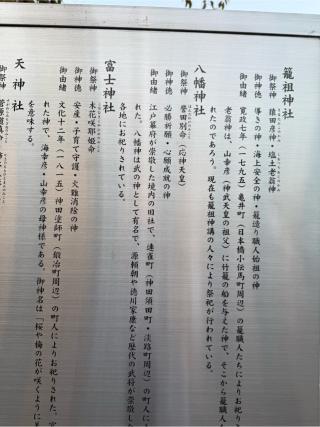 籠祖神社
御祭神 猿田彦神・塩土老翁神
御神徳 導きの神・海上安全の神・籠造り職人始祖の神
御由緒 寛政七年(一七九五)亀井町(日本橋小伝馬町周辺)の籠職人たちによりお祀り
老翁神は、山幸彦(神武天皇の祖父)に竹籠の船を与えた神で、そこから籠職人
れたのであろう。 現在も籠祖神講の人々により祭祀が行われている。
八幡神社
御祭神 誉田別命(応神天皇)
御神徳 必勝祈願・心願成就の神
御由緒 江戸幕府が崇敬した境内の旧社で、連雀町(神田須田町・淡路町周辺)の町人に
れた。八幡神は武の神として有名で、源頼朝や徳川家康など歴代の武将が崇敬し
各地にお祀りされている。
富士神社
御祭神 木花咲耶姫命
御神徳 安産・子育て守護・火難消除の神
御由緒 文化十二年(一八一五)神田塗師町(鍛冶町周辺)の町人によりお祀りされた。
れた神で、海幸彦・山幸彦の母神様である。御神名は「桜や梅の花が咲くように
を意味する。
天神社
御祭神 菅原道真